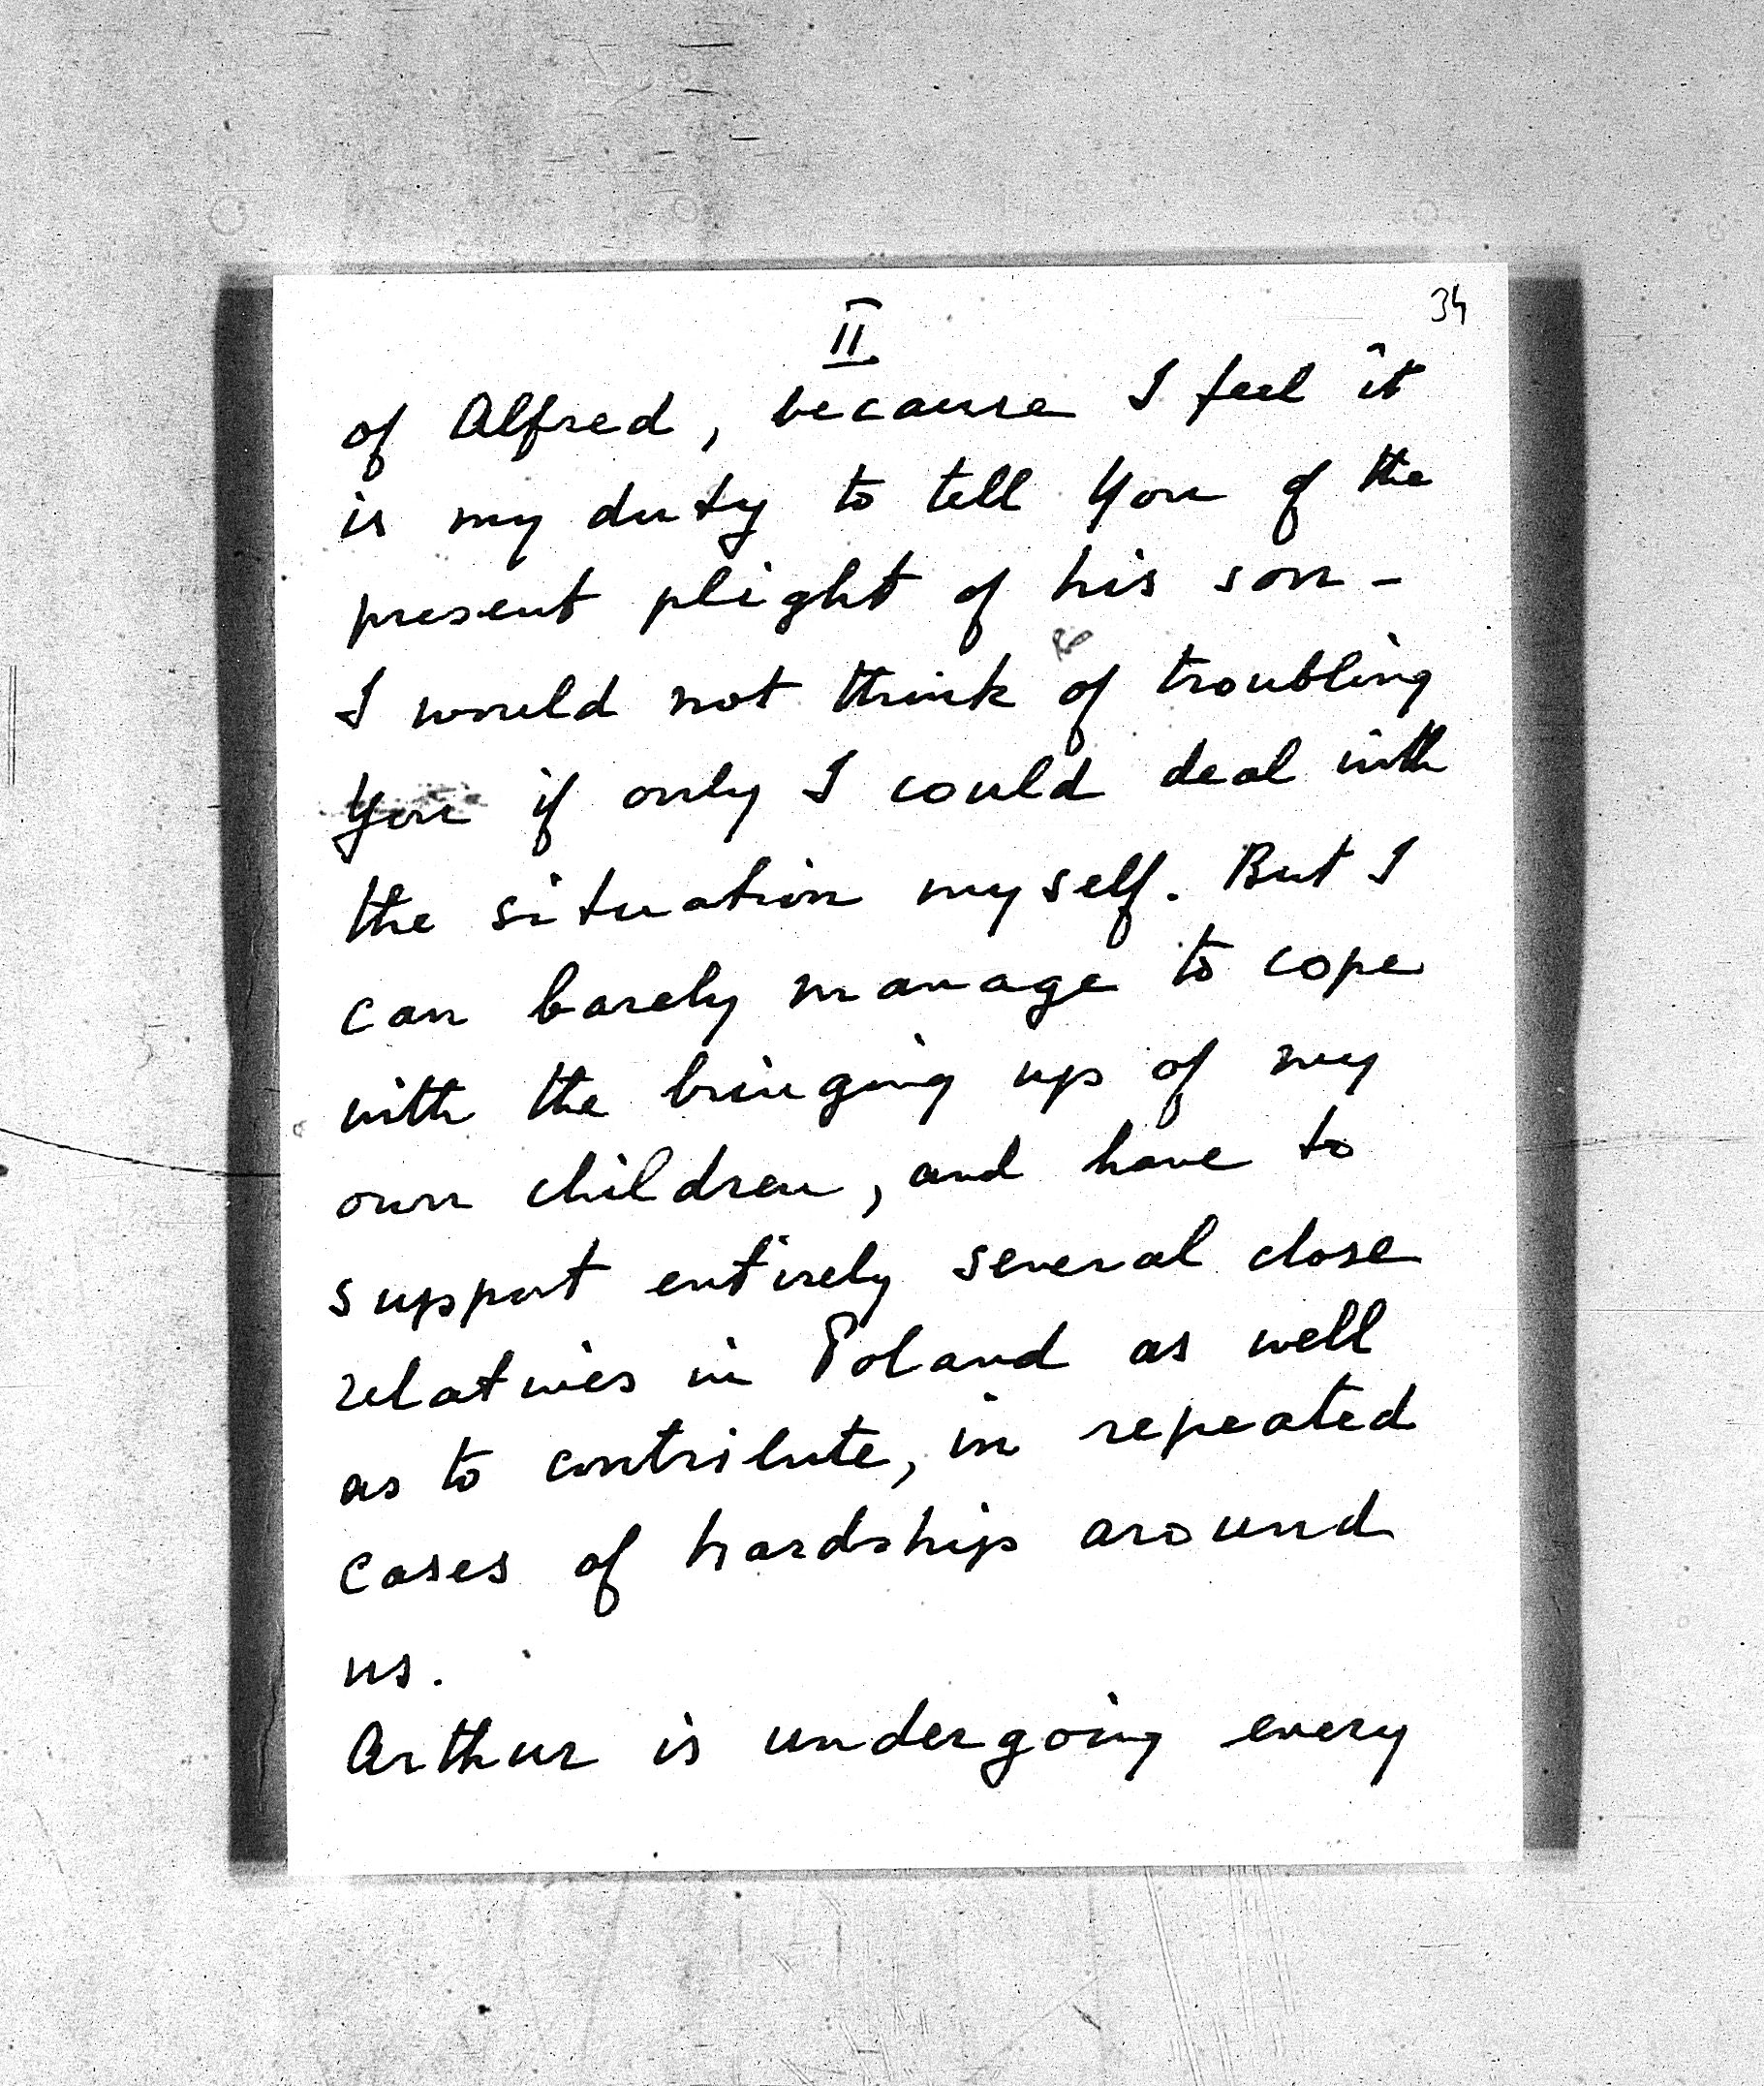 34
II.
of Alfred, because I feel it
is my duty to tell You of the
present plight of his son -
I would not think of troubling
You if only I could deal with
the situation myself. But I
can barely manage to cope
with the bringing up of my
own children, and have to
support entirely several close
relatives in Poland as well
as to contribute, in repeated
cases of hardship around
us.
Arthur is undergoing every